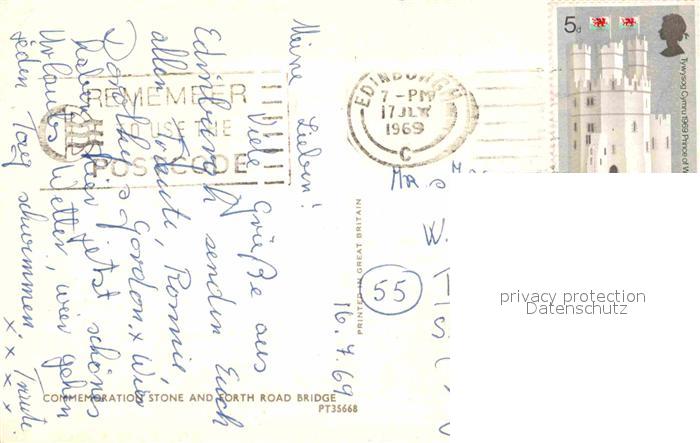 Meine Lieben!
Viele Grüße aus
Edinburgh senden Euch
allen Traute, Ronnie,
Dorothy & Gordon. x Wir
haben hier jetzt schönes
Urlaubs Wetter, wir gehn
jeden Tag schwimmen.
Traute
x x x x
16.7.69
55
REMEMBER
TO USE THE
POSTCODE
EDINBURGH
7-PM
17 JLY
1969
C
5d
Tywysog Cymru 1969 Prince of W
MR &
W.
PRINTED IN GREAT BRITAIN
COMMEMORATION STONE AND FORTH ROAD BRIDGE
PT35668
privacy protection
Datenschutz